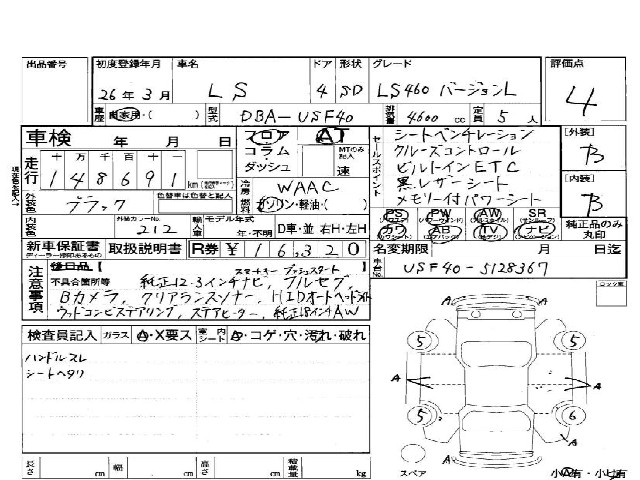 出品番号 初度登録年月 車名 ドア 形状 グレード 評価点
26年3月 LS 4 SD LS460 バージョンL 4
車歴 自家用・( ) 型式 DBA-USF40 排気量 4600 cc 定員 5 人
車検 年 月 日 フロア AT
コラム MTのみ記入
ダッシュ 速
走行 十 万 千 百 十 一
148691 km
冷房 WAAC
燃料 ガソリン・軽油・( )
外装色 ブラック 色替車は色替と記入
内装色 外装カラーNo. 212 輸入車 モデル年式 年・不明 D車・並 右H・左H
セールスポイント
シートベンチレーション
クルーズコントロール
ビルトインETC
黒レザーシート
メモリー付パワーシート
[外装] B
[内装] B
PS PW AW SR
カワ AB TV ナビ
純正品のみ丸印
新車保証書 取扱説明書 R券 ¥16,320 名変期限 月 日迄
車台No. USF40-5128367
注意事項 後日品【
不具合箇所等 スマートキー プッシュスタート
純正12.3インチナビ, フルセグ,
Bカメラ, クリアランスソナー, HIDオートヘッドライト
ウッドコンビステアリング, ステアヒーター, 純正18インチAW
検査員記入 ガラス A・X要ス 室内シート A・コゲ・穴・汚れ・破れ
ハンドルスレ
シートヘタリ
5 5
A A A
5 6
A
A
スペア 小A有・小ヒ有
長さ cm 幅 cm 高さ cm 積載量 kg